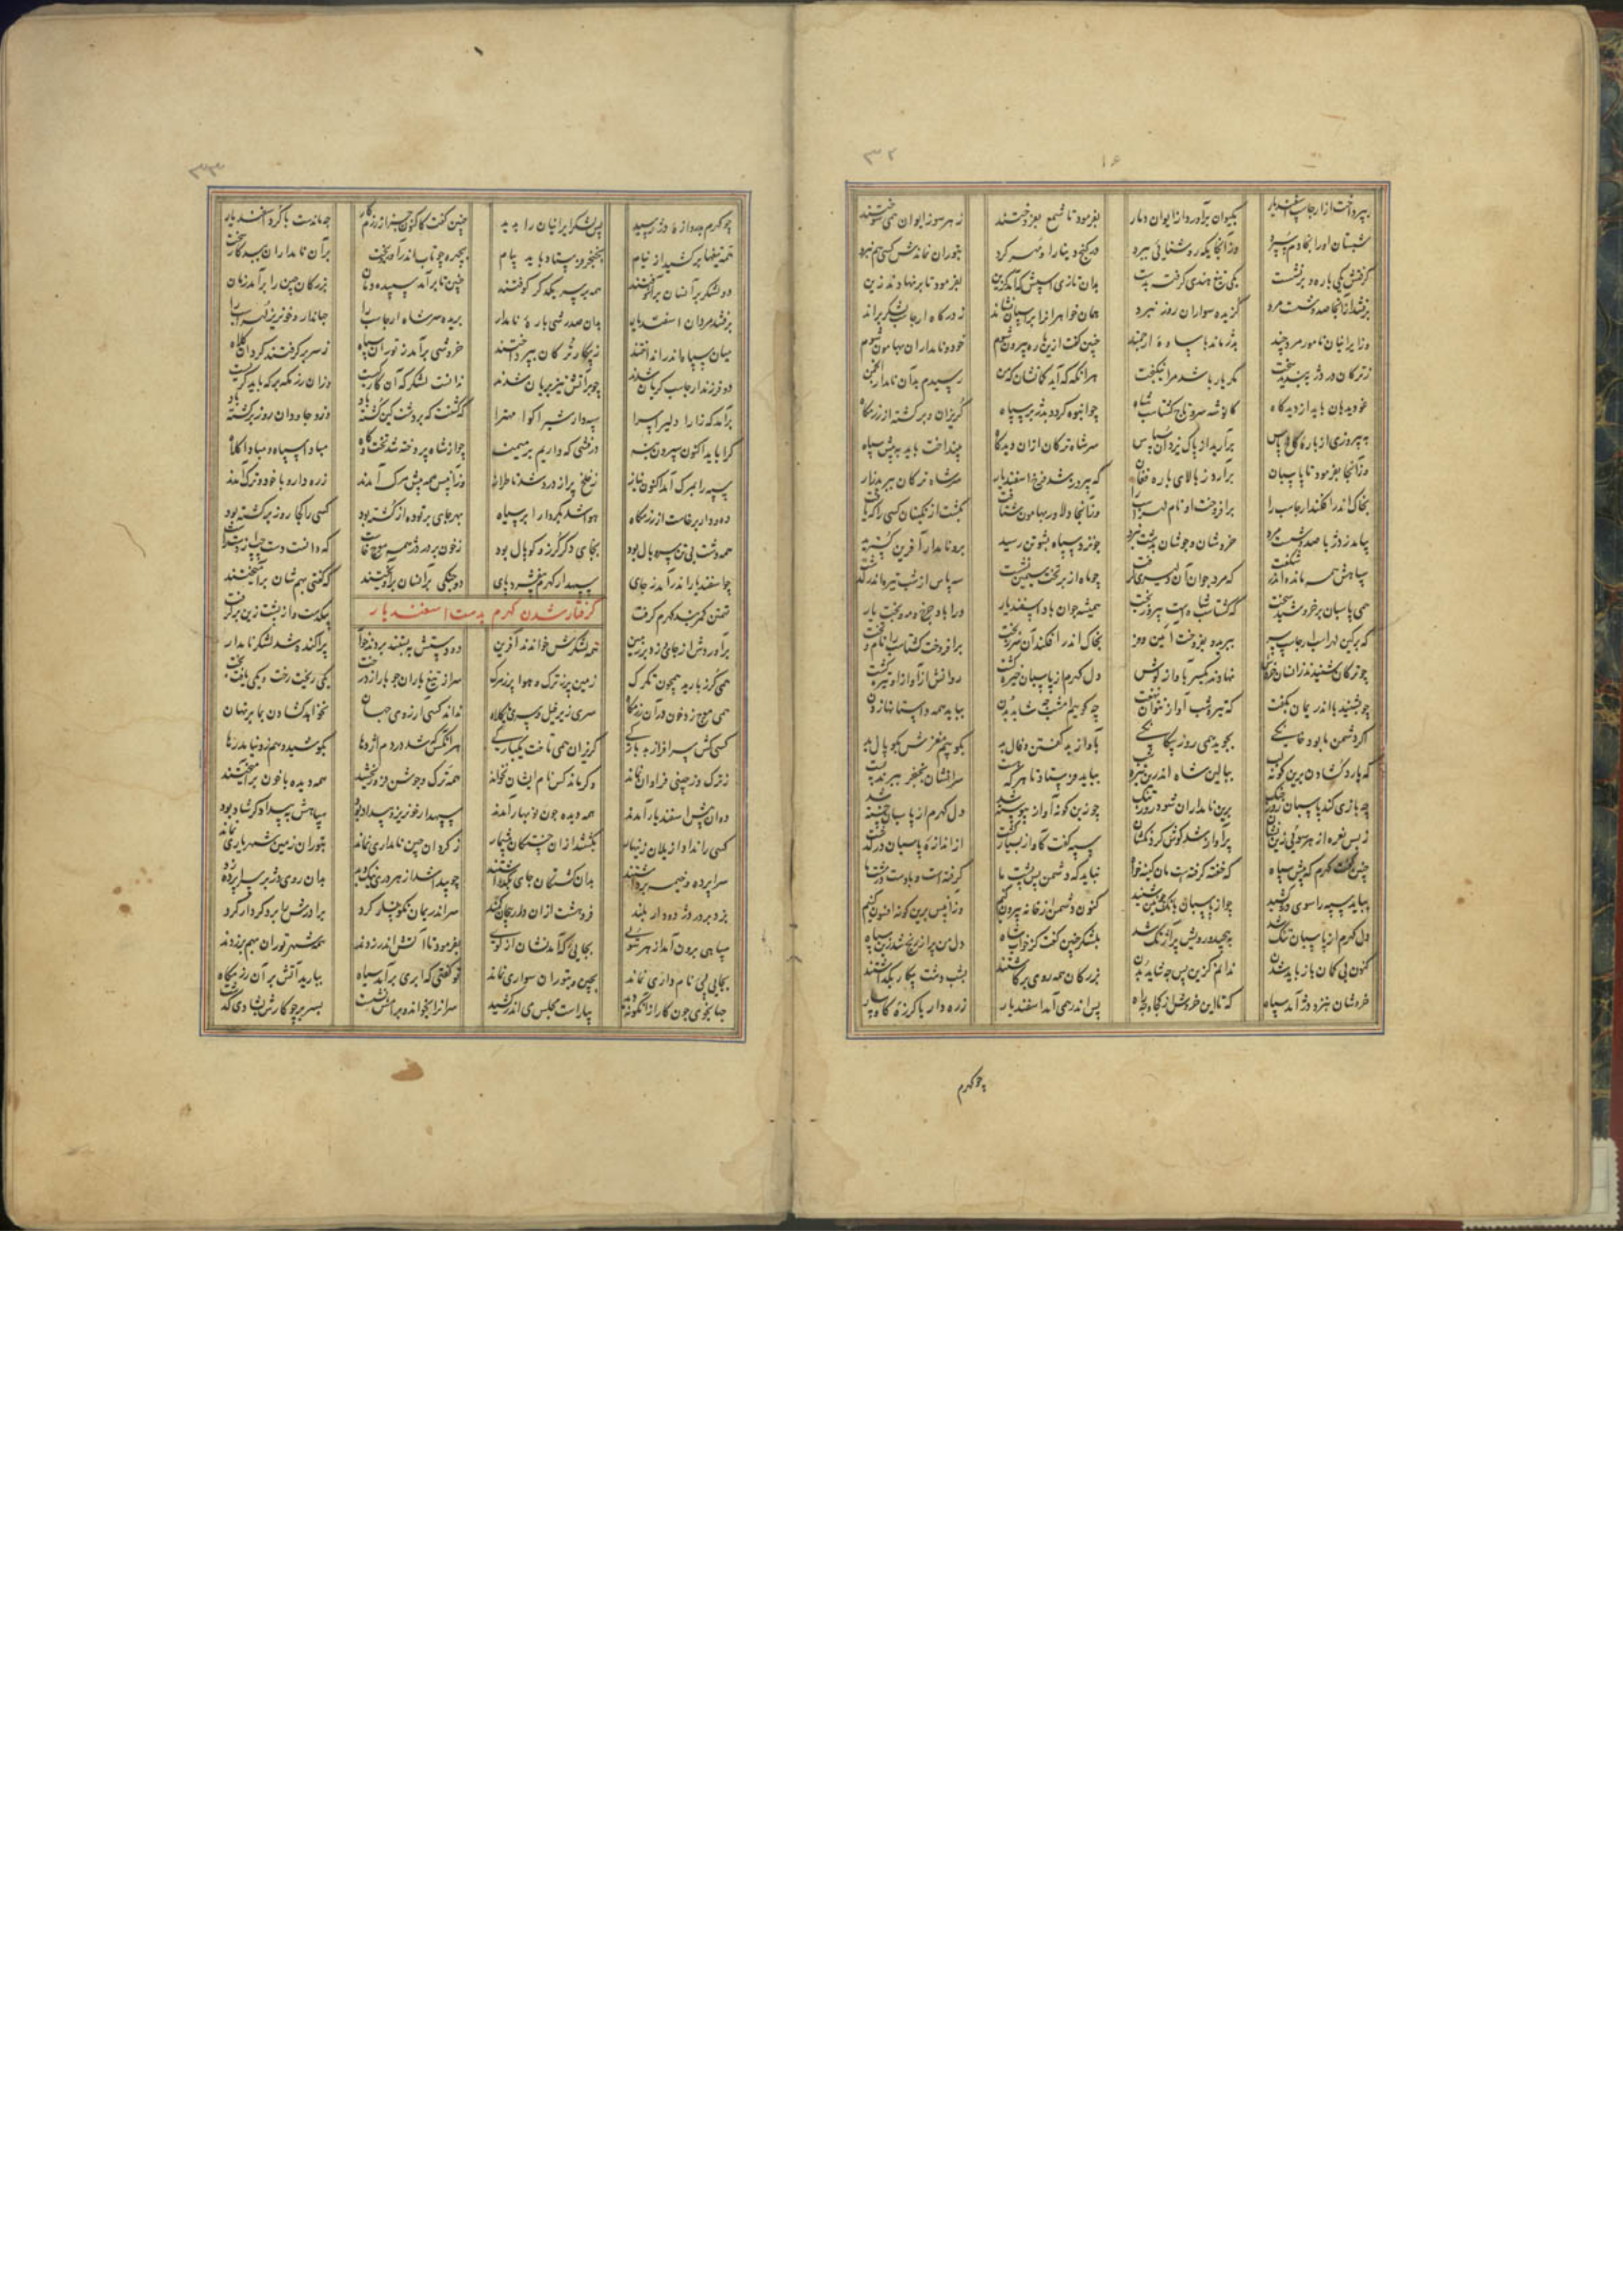 ۳۲
بپرداخت از ارجاسب اسفندیار بکیوان برآورد از ایوان دمار بفرمود تا شمع بفروختند ز هر سو ز ایوان همی سوختند
شبستان او را بخادم سپرد وزآنجا یکی روشنائی ببرد در گنج دینار او مهر کرد بتوران نماندش کسی هم نبرد
گرفتش یکی باره و برنشست یکی تیغ هندی گرفته بدست بدان تازی اسپش کآمد گزین بفرمود تا برنهادند زین
برفتند از آنجا صد و شست مرد گزیده سواران روز نبرد همان خواهرانرا بر اسپان نشاند ز درگاه ارجاسب لشکر براند
وز ایرانیان نامور مرد چند بدژ ماند با ساوه ارجمند چنین گفت ازین باره بیرون شوم خود و نامداران بهامون شوم
ز ترکان در دژ ببندید سخت مگر یار باشد مرا نیکبخت هرانگه که آید گمانتان که من رسیدم بدآن نامدار انجمن
غو دیدبان باید از دیدگاه کانوشه سر و تاج گشتاسب شاه چو انبوه گردد بدژ بر سپاه گریزان و برگشته از رزمگاه
به پیروزی از باره گاه پاس برآرید از پاک یزدان سپاس سر شاه ترکان ازان دیدگاه بینداخت باید به پیش سپاه
وزآنجا بفرمود تا پاسبان برآرد ز بالای باره فغان که پیروز شد فرخ اسفندیار سر شاه ترکان
بخاک اندر افکند ارجاسب را برافروخت او نام لهراسب را وزآنجا دلاور بهامون شتافت بکشت از تکینان کسی را که یافت
بیامد ز دژ با صد و شست مرد خروشان و جوشان بدشت نبرد چو نزد سپاه پشوتن رسید برو نامدار آفرین گسترید
سپاهش همه مانده اندر شگفت که مرد جوان آن دلیری گرفت چو ماه از بر تخت سیمین نشست سه پاس از شب تیره اندر گذشت
همی پاسبان برخروشید سخت که گشتاسب شاهست پیروزبخت همیشه جوان باد اسفندیار ورا باد چرخ و مه و بخت یار
که بر کین لهراسب ارجاسب سر ببرید و بفروخت آئین و فر بخاک اندر افکند آن تخت برافروخت گشتاسب را نام و بخت
چو ترکان شنیدند زانسان خروش نهادند یکسر بآواز گوش دل کهرم از پاسبان خیره گشت روانش از آواز او تیره گشت
چو بشنید با اندریمان بگفت که تیره شب آواز نتوان نهفت چه گویی که امشب چه شاید بدن بباید همه داستانها زدن
اگر دشمن ما بود خانگی بجوید همی روز بیگانگی بآواز بد گفتن و فال بد بکوبیم مغزش بکوپال بد
که یارد گشادن برین گونه لب ببالین شاه اندرین تیره شب بباید فرستاد تا هرکه هست سرانشان بخنجر ببرند پست
چه بازی کند پاسبان روز جنگ برین نامداران شود روز تنگ چو زین گونه آواز پیوسته شد دل کهرم از پاسبان خسته شد
ز بس نعره از هر سوئی زین نشان پرآواز شد گوش گردنکشان سپه گفت کآواز بسیار گشت از اندازه پاسبان درگذشت
چنین گفت کهرم که پیش سپاه که خفته گرفتست مان کینه خواه نباید که دشمن پس پشت ما گرفتست و باد است در مشت ما
بباید سپه را سوی دژ کشید چو از پاسبان بانگ چونین شنید کنون دشمن از خانه بیرون کنیم وزانپس برین گونه افسون کنیم
دل کهرم از پاسبان تنگ شد به پیچید و رویش پرآژنگ شد بلشکر چنین گفت کز خواب شاه دل من پر از رنج شد زین سپاه
کنون بی گمان باز باید شدن ندانم کزین پس چه شاید بدن بزرگان همه روی برگاشتند بشب دشت پیکار بگذاشتند
خروشان بنزد دژ آمد سپاه که تا این خروش از کجا دید راه پس اندر همی آمد اسفندیار زره دار با گرزه گاوسار
چو کهرم
۳۳
چو کهرم بدروازه دژ رسید پس لشکر ایرانیان را بدید چنین گفت کاکنون جز از رزم کار چه ماندست با گرد اسفندیار
همه تیغها برکشید از نیام بخنجر فرستاد باید پیام بچهره چو تاب اندر آورد بخت برآن نامداران ببد کار سخت
دو لشکر برآنسان برآشوفتند همه بر سر یکدگر کوفتند چنین تا برآمد سپیده دمان بزرگان چین را برآمد زمان
برفتند مردان اسفندیار بدان صد رشی باره نامدار بریده سر شاه ارجاسب را جهاندار و خونریز لهراسب را
میان سپاه اندر انداختند ز پیکار ترکان بپرداختند خروشی برآمد ز توران سپاه ز سر برگرفتند گردان کلاه
دو فرزند ارجاسب گریان شدند چو بر آتش تیز بریان شدند ندانست لشکر که آن کار کیست وزان رزمگه بر که باید گریست
برآمد که زارا دلیرا سرا سپهدار شیراکوا مهترا که کشتت که بر دشت کین کشته باد برو جاودان روز برگشته باد
کرا باید اکنون سپردن بنه درفشی که داریم بر میمنه چو از شاه پردخته شد تختگاه مبادا سپاه و مبادا کلاه
سپه را بمرگ آمد اکنون نیاز ز خلخ پر از درد شد تا طراز وزآنپس همه پیش مرگ آمدند زره دار و با خود و ترگ آمدند
ده و دار برخاست از رزمگاه هوا شد بکردار ابر سیاه بهر جای بر توده از کشته بود کسی را کجا روز برگشته بود
همه دشت بی تن سر و یال بود بجای دگر گرز و کوپال بود ز خون بر در دژ همی موج خاست که دانست دست چپ از دست راست
چو اسفندیار اندرآمد ز جای سپهدار کهرم بیفشرد پای دو جنگی برآنسان برآویختند که گفتی بهم شان برآمیختند
گرفتار شدن کهرم بدست اسفندیار
تهمتن کمربند کهرم گرفت بیکدست و از پشت زین برگرفت
برآوردش از جای و زد بر زمین همه لشکرش خواندند آفرین دو دستش ببستند و بردند خوار پراکنده شد لشکر نامدار
همی گرز بارید همچون تگرگ زمین پر ز ترگ و هوا پر ز مرگ سر از تیغ باران چو بار از درخت یکی ریخت رخت و یکی یافت بخت
همی موج زد خون در آن رزمگاه سری زیر خیل و سری با کلاه نداند کسی آرزوی جهان نخواهد گشادن بما بر نهان
کسی کش سرافراز بد بارگی گریزان همی تاخت یکبارگی هرانکس که شد در دم اژدها بکوشید و هم زو نیامد رها
ز ترک و ز چینی فراوان نماند وگر ماند کس نام ایشان نخواند همه ترگ و جوشن فرو ریختند همه دیده با خون برآمیختند
دوان پیش اسفندیار آمدند همه دیده چون نوبهار آمدند سپهدار خونریز و بیداد بود سپاهش ببیداد گر شاد بود
کسی را نداد از یلان زنهار بکشتند ازان خستگان بیشمار ز گردان چین نامداری نماند بتوران زمین شهریاری نماند
سراپرده و خیمه برداشتند بدان کشتگان جای بگذاشتند چو پیدا شد از هر دری نیک و بد بدان روی دژ بر سراپرده زد
بزد بر در دژ دو دار بلند فروهشت ازان دار پیچان کمند سر اندریمان نگونسار کرد برادرش را بر دو دار کرد
سپاهی برون آمد از هر سوئی بجائی که آمد نشان از گوی بفرمود تا آتش اندر زدند همه شهر توران بهم برزدند
بجایی پی نام داری نماند بچین و بتوران سواری نماند تو گفتی که ابری برآمد سیاه ببارید آتش بر آن رزمگاه
جهانجوی چون کار ازانگونه دید بیاراست مجلس می اندر کشید سرانرا بخواند و برامش نشست بسر بر چو کارش بشادی گذشت